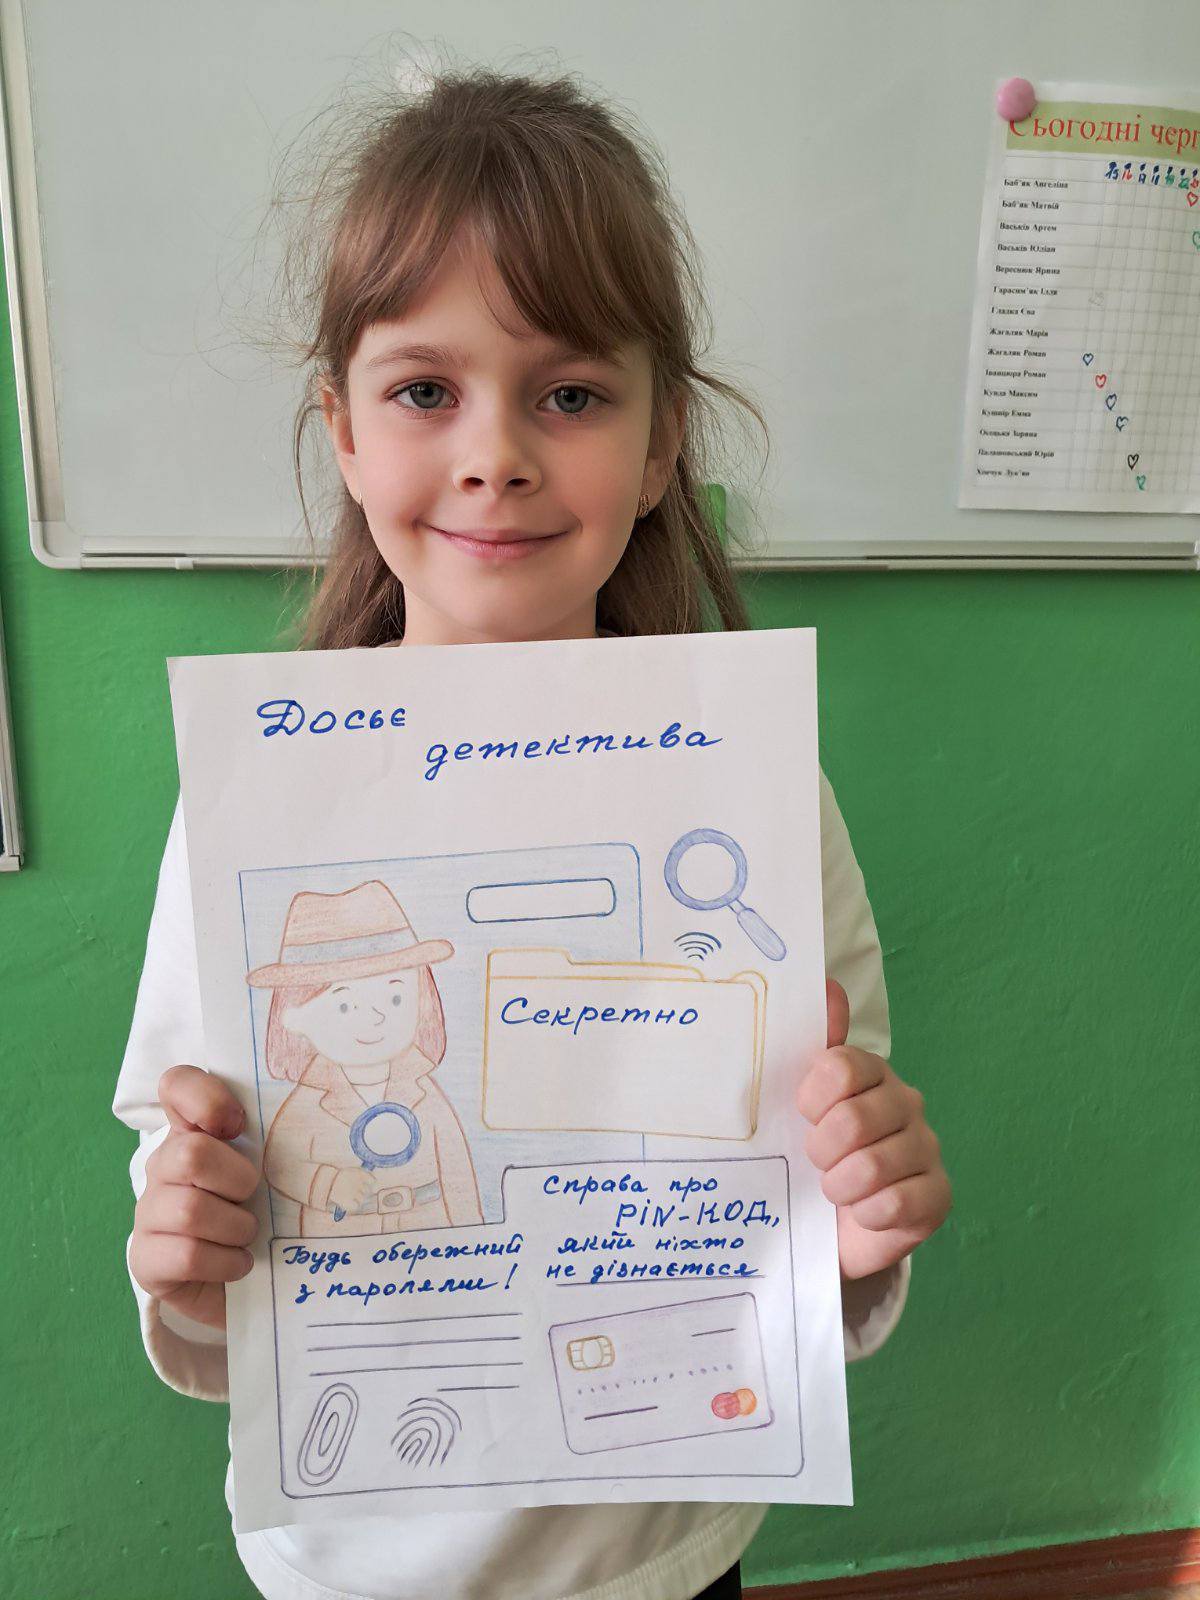 Сьогодні черг
Баб'як Ангеліна
Баб'як Матвій
Васьків Артем
Васьків Юліан
Вереснюк Ярина
Гарасим'як Ілля
Гладка Єва
Жагаляк Марія
Жагаляк Роман
Іванцюра Роман
Кунда Максим
Кушнір Емма
Осецька Зоряна
Палашовський Юрій
Хімчук Лук'ян
Досьє
детектива
Секретно
Справа про
PIN-КОД,
який ніхто
не дізнається
Будь обережний
з паролями!